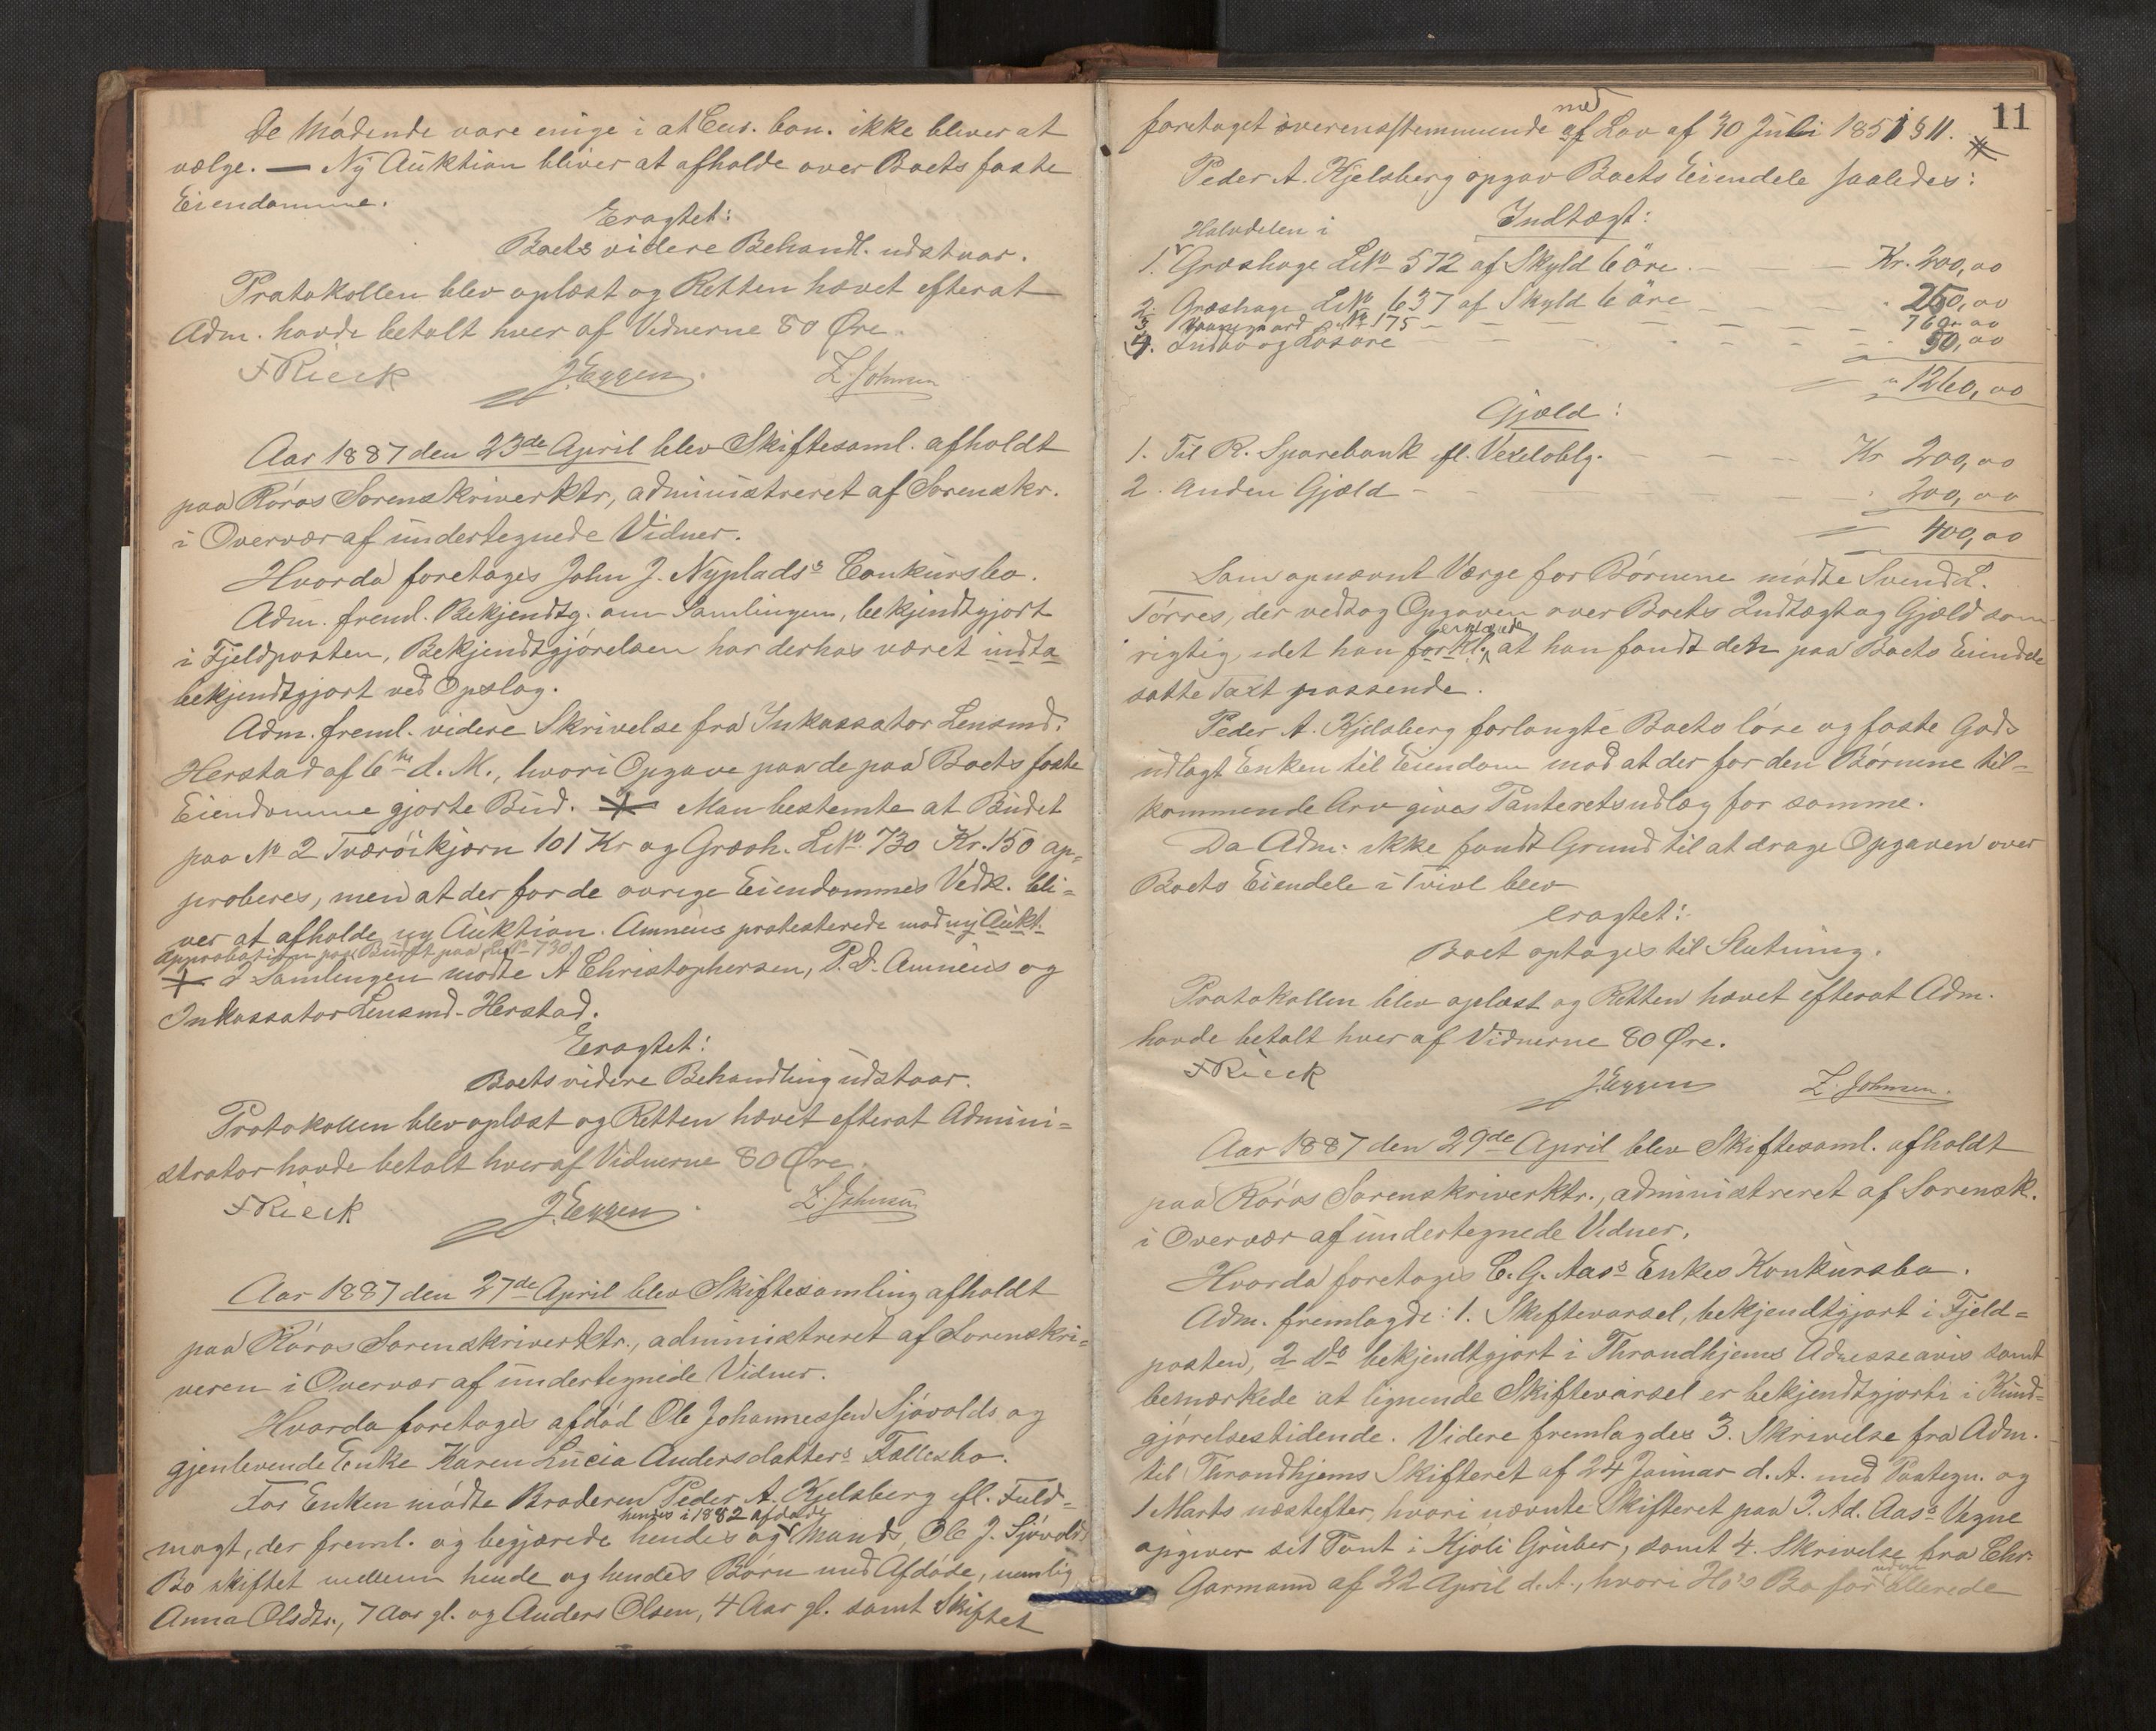 De Mødende vare enige i at Cur. bon. ikke bliver at
vælge. — Ny Auktion bliver at afholde over Boets faste
Eiendomme.
Eragtet:
Boets videre Behandl. udstaar.
Protokollen blev oplæst og Retten hævet efterat
Adm. havde betalt hver af Vidnerne 80 Øre.
F Rieck J. Eggen. Z. Johnsen
Aar 1887 den 23de April blev Skiftesaml. afholdt
paa Røros Sorenskriverktr, administreret af Sorenskr.
i Overvær af undertegnede Vidner.
Hvorda foretoges John J. Nyplads's Conkursbo.
Adm. freml. Bekjendtg. om Samlingen, bekjendtgjort
i Fjeldposten, Bekjendtgjørelsen har derhos været
bekjendtgjort ved Opslag.
Adm. freml. videre Skrivelse fra Inkassator Lensmd.
Herstad af 6te d. M., hvori Opgave paa de paa Boets faste
Eiendomme gjorte Bud. Man bestemte at Budet
paa No 2 Tværøikjærn 101 Kr og Græsh. LNo. 730 Kr. 150 ap-
proberes, men at der for de øvrige Eiendommes Vedk. bli-
ver at afholde ny Auktion. Amnéus protesterede mod ny Aukt.
Approbation paa Budet paa LNo 730.
I Samlingen mødte A Christophersen, P. D. Amnéus og
Inkassator Lensmd. Herstad.
Eragtet:
Boets videre Behandling udstaar.
Protokollen blev oplæst og Retten hævet efterat Admini-
strator havde betalt hver af Vidnerne 80 Øre.
F Rieck J. Eggen. Z. Johnsen
Aar 1887 den 27de April blev Skiftesamling afholdt
paa Røros Sorenskriverktr., administreret af Sorenskri-
veren i Overvær af undertegnede Vidner.
Hvorda foretoges afdød Ole Johannessen Sjøvolds og
gjenlevende Enke Karen Lucia Andersdatters Fællesbo.
For Enken mødte Broderen Peder A. Kjelsberg efl. Fuld-
hendes i 1882 afdøde
magt, der freml. og begjærede hendes og Mands, Ole J. Sjøvolds
Bo skiftet mellem hende og hendes Børn med Afdøde, nemlig
Anna Olsdtr., 7 Aar gl. og Anders Olsen, 4 Aar gl. samt Skiftet
11
med
foretaget overensstemmende af Lov af 30 Juli 1851 § 11.
Peder A. Kjelsberg opgav Boets Eiendele saaledes:
Indtægt:
Halvdelen i
1. Græshage LNo 572 af Skyld 6 öre. Kr. 200,00
2. Græshage LNo 637 af Skyld 6 öre 250,00
3 Vaaningsgaard No 175 760,00
4. Indbo og Løsøre 50,00
1260,00
Gjæld:
1. Til R. Sparebank efl. Vexeloblg. Kr 200,00
2. Anden Gjæld 200,00
400,00
Som opnævnt Værge for Børnene mødte Svend L.
Tørres, der vedtog Opgaven over Boets Indtægt og Gjæld som
erklærede
rigtig, idet han forkl. at han fandt den paa Boets Eiendele
satte Taxt passende.
Peder A. Kjelsberg forlangte Boets løse og faste Gods
udlagt Enken til Eiendom mod at der for den Børnene til-
kommende Arv gives Panteretsudlæg for samme.
Da Adm. ikke fandt Grund til at drage Opgaven over
Boets Eiendele i Tvivl blev
eragtet:
Boet optages til Slutning.
Protokollen blev oplæst og Retten hævet efterat Adm.
havde betalt hver af Vidnerne 80 Øre.
F Rieck J. Eggen Z. Johnsen.
Aar 1887 den 29de April blev Skiftesaml. afholdt
paa Røros Sorenskriverktr., administreret af Sorensk.
i Overvær af undertegnede Vidner.
Hvorda foretoges C. G. Aas's Enkes Konkursbo.
Adm. fremlagde: 1. Skiftevarsel, bekjendtgjort i Fjeld-
posten, 2 do bekjendtgjort i Throndhjems Adresseavis samt
bemærkede at lignende Skiftevarsel er bekjendtgjort i Kund-
gjørelsestidende. Videre fremlagdes 3. Skrivelse fra Adm.
til Throndhjems Skifteret af 24 Januar d. A. med Paategn. og
1 Marts næstefter, hvori nævnte Skifteret paa J. Ad. Aas's Vegne
opgiver sit Tent i Kjøli Gruber, samt 4. Skrivelse fra Chr.
Garmann af 22 April d. A., hvori Ho's Bo for allerede